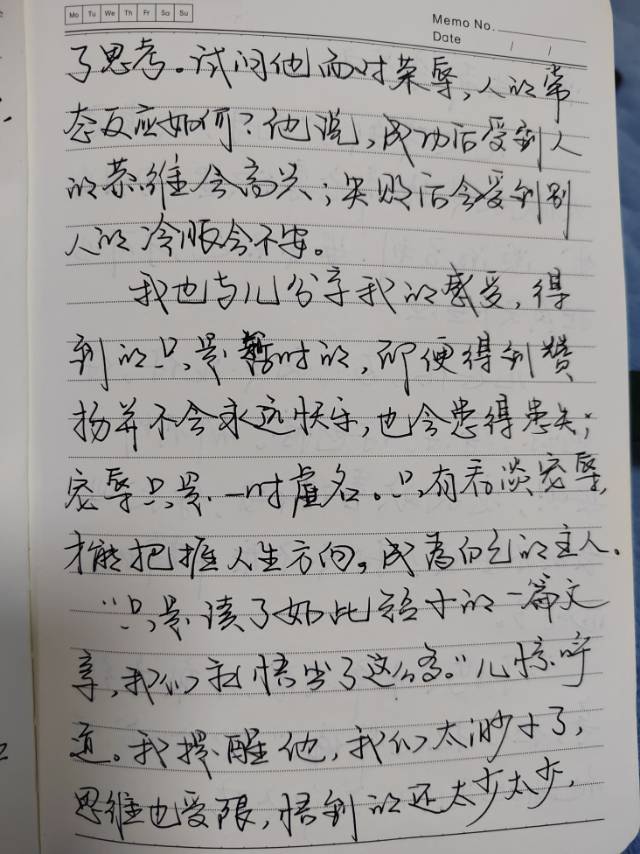 Mo Tu We Th Fr Sa Su
Memo No.
Date / /
了思考。试问他面对荣辱,人的常
态反应如何?他说,成功后受到人
的恭维会高兴;失败后会受到别
人的冷眼会不安。
我也与儿分享我的感受,得
到的只是暂时的,即便得到赞
扬并不会永远快乐,也会患得患失;
宠辱只是一时虚名。只有看淡宠辱,
才能把握人生方向。成为自己的主人.
"只是读了如此短小的一篇文
章,我们就悟出了这么多。"儿惊呼
道。我提醒他,我们太渺小了,
思维也受限,悟到的还太少太少,